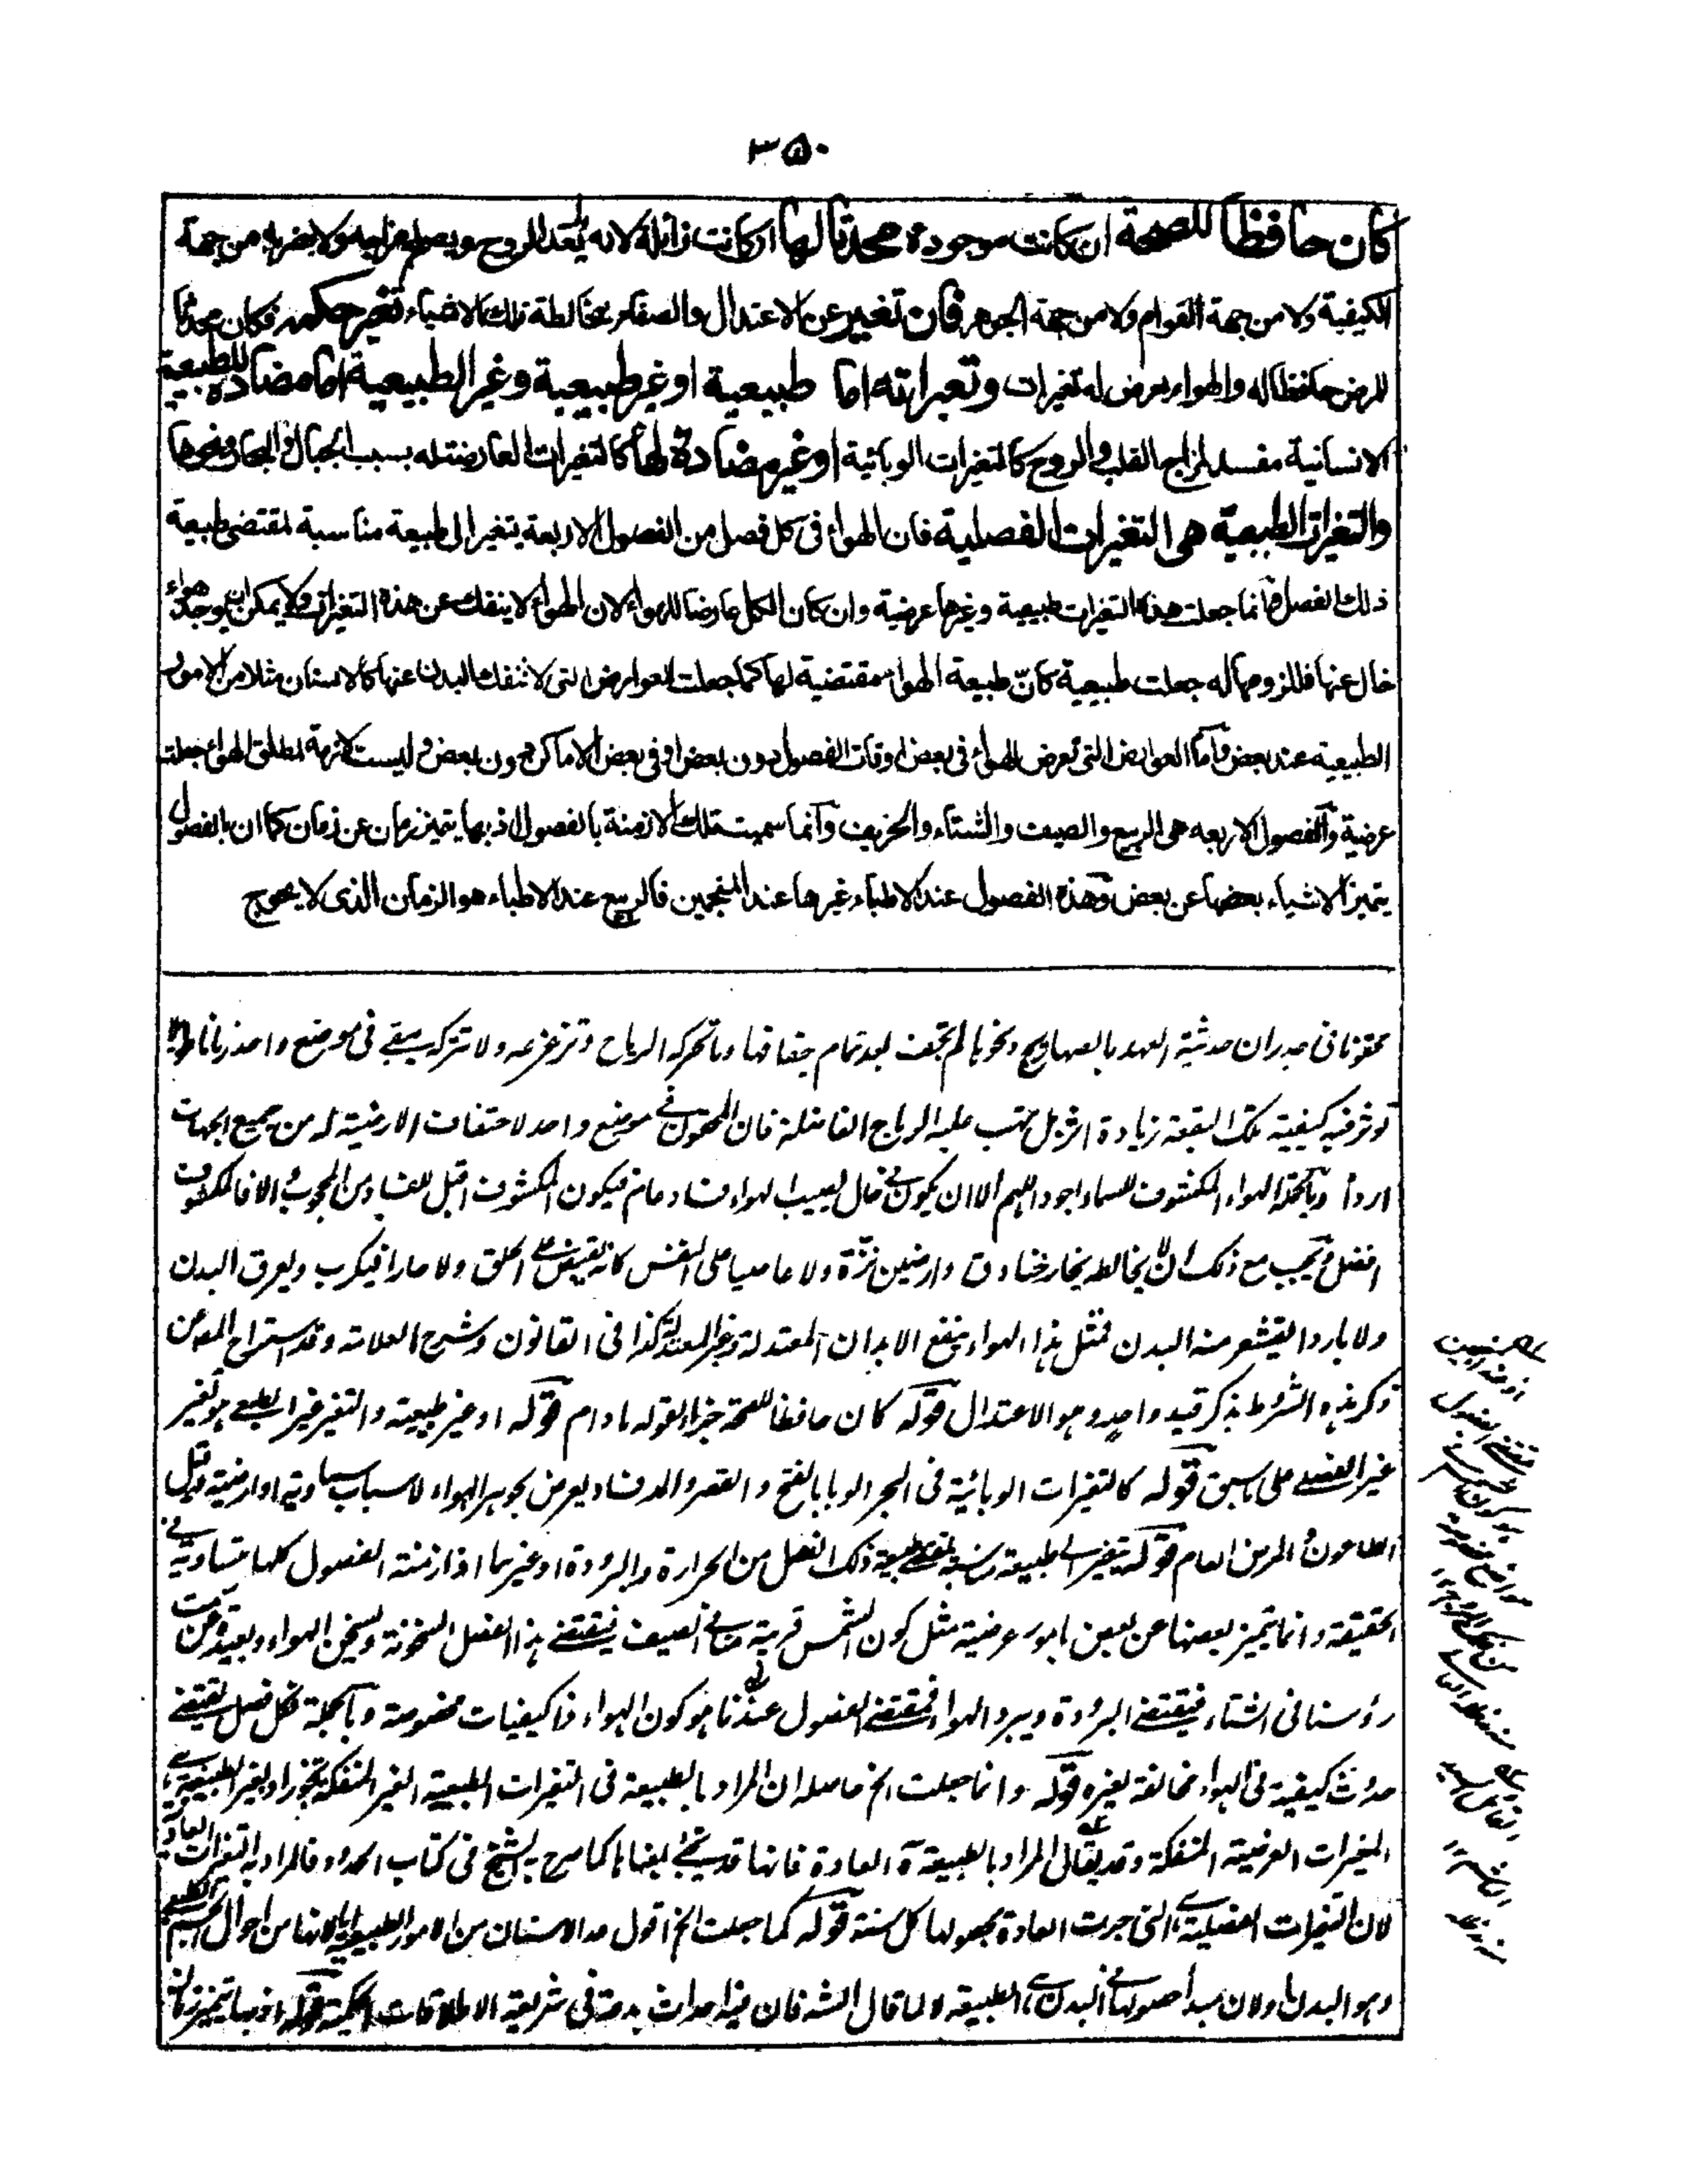 ٣٥٠
كان حافظا للصحة ان كانت موجودة محدثا لها ان كانت زائلة لانه يعدل الروح ويصلح مزاجه ولا يضر به من جهة
الكيفية ولا من جهة القوام ولا من جهة الجوهر فان تغير عن الاعتدال والصفاء بمخالطة تلك الاشياء تغير حكمه فكان محدثا
للمرض حافظا له والهواء يعرض له تغيرات وتغيراته اما طبيعية او غير طبيعية وغير الطبيعية اما مضادة للطبيعة
الانسانية مفسدة لمزاج القلب والروح كالتغيرات الوبائية او غير مضادة لها كالتغيرات العارضة له بسبب الجبال والبحار ونحوها
والتغيرات الطبيعية هى التغيرات الفصلية فان الهواء فى كل فصل من الفصول الاربعة يتغير الى طبيعة مناسبة لمقتضى طبيعة
ذلك الفصل وانما جعلت هذه التغيرات طبيعية وغيرها عرضية وان كان الكل عارضا للهواء لان الهواء لا ينفك عن هذه التغيرات ولا يمكن ان يوجد هواء
خال عنها فللزومها له جعلت طبيعية كانّ طبيعة الهواء مقتضية لها كما جعلت العوارض التى لا تنفك البدن عنها كالاسنان مثلا من الامور
الطبيعية عند بعض واما العوارض التى تعرض للهواء فى بعض اوقات الفصول دون بعض او فى بعض الاماكن دون بعض وليست لازمة لمطلق الهواء جعلت
عرضية والفصول الاربعه هى الربيع والصيف والشتاء والخريف وانما سميت تلك الازمنة بالفصول اذ بها يتميز زمان عن زمان كما ان بالفصول
يتميز الاشياء بعضها عن بعض وهذه الفصول عند الاطباء غيرها عند المنجمين فالربيع عند الاطباء هو الزمان الذى لا يحوج
محقونا فى جدران حديثة العهد بالصهاريج ونحوها لم تجف بعد تمام جفافها وما تحركه الرياح وتزعزعه ولا تتركه يبقى فى موضع واحد زمانا طويلا
تؤثر فيه كيفية تلك البقعة زيادة اثر بل يهب عليه الرياح الفاضلة فان المحقون فى موضع واحد لاحتفاف الارضية له من جميع الجهات
اردأ وبالجملة الهواء المكشوف للسماء اجود اللهم الا ان يكون فى حال يصيب الهواء فساد عام فيكون المكشوف اقبل للفساد من المحجوب والا فالمكشوف
افضل ويجب مع ذلك ان لا يخالطه بخار خنادق وارضين نزّة ولا عاصيا على النفس كانه يقبض على الحلق ولا حارا فيكرب ويعرق البدن
ولا باردا يقشعر منه البدن فمثل هذا الهواء ينفع الابدان المعتدلة وغير المعتدلة كذا فى القانون وشرح العلامة وقد استراح المص عن
ذكر هذه الشروط بذكر قيد واحد وهو الاعتدال قوله كان حافظا للصحة جزاء لقوله ما دام قوله او غير طبيعية والتغير غير الطبيعى هو تغير
غير الفصلى على ما سبق قوله كالتغيرات الوبائية فى البحر الوبا بالفتح والقصر والمد فساد يعرض لجوهر الهواء لاسباب سماوية او ارضية وقيل
الطاعون والمرض العام قوله يتغير الى طبيعة مناسبة لمقتضى طبيعة ذلك الفصل من الحرارة والبرودة او غيرهما اذ ازمنة الفصول كلها متساوية فى
الحقيقة وانما يتميز بعضها عن بعض بامور عرضية مثل كون الشمس قريبة منا فى الصيف فيقتضى هذا الفصل السخونة ويسخن الهواء وبعيدة عن سمت
رؤسنا فى الشتاء فيقتضى البرودة ويبرد الهواء فمقتضى الفصول عندنا هو كون الهواء ذا كيفيات مخصوصة وبالجملة فكل فصل يقتضى
حدوث كيفية فى الهواء مخالفة لغيره قوله وانما جعلت الخ حاصله ان المراد بالطبيعة فى التغيرات الطبيعية الغير المنفكة تجوزا وبغير الطبيعية
التغيرات العرضية المنفكة وقد يقال المراد بالطبيعة العادة فانها قد تجئ بمعناها كما صرح به الشيخ فى كتاب الحدود فالمراد به التغيرات العادية
لان التغيرات الفصلية هى التى جرت العادة بحصولها كل سنة قوله كما جعلت الخ اقول عد الاسنان من الامور الطبيعية لانها من احوال الجسم الطبيعى
وهو البدن او لان مبدأ حصولها فى البدن هى الطبيعة لا لما قال الشه فان فيه احداث بدعة فى شريعة الاطلاقات الحكمية قوله اذ بها يتميز زمان